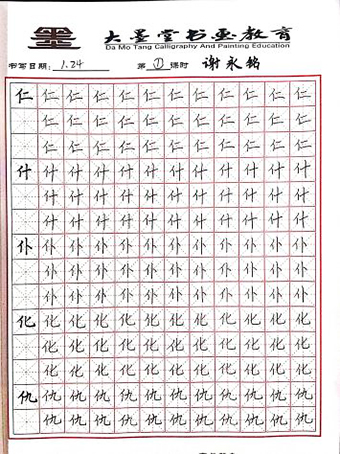 大墨堂书画教育
Da Mo Tang Calligraphy And Painting Education
书写日期: 1.24 第①课时 谢永铭
仁仁仁仁仁仁仁仁仁仁仁仁
仁仁仁仁仁仁仁仁仁仁仁
仁仁仁仁仁仁仁仁仁仁仁
什什什什什什什什什什什什
什什什什什什什什什什什
什什什什什什什什什什什
仆仆仆仆仆仆仆仆仆仆仆仆
仆仆仆仆仆仆仆仆仆仆仆
仆仆仆仆仆仆仆仆仆仆仆
化化化化化化化化化化化化
化化化化化化化化化化化
化化化化化化化化化化化
仇仇仇仇仇仇仇仇仇仇仇仇
仇仇仇仇仇仇仇仇仇仇仇